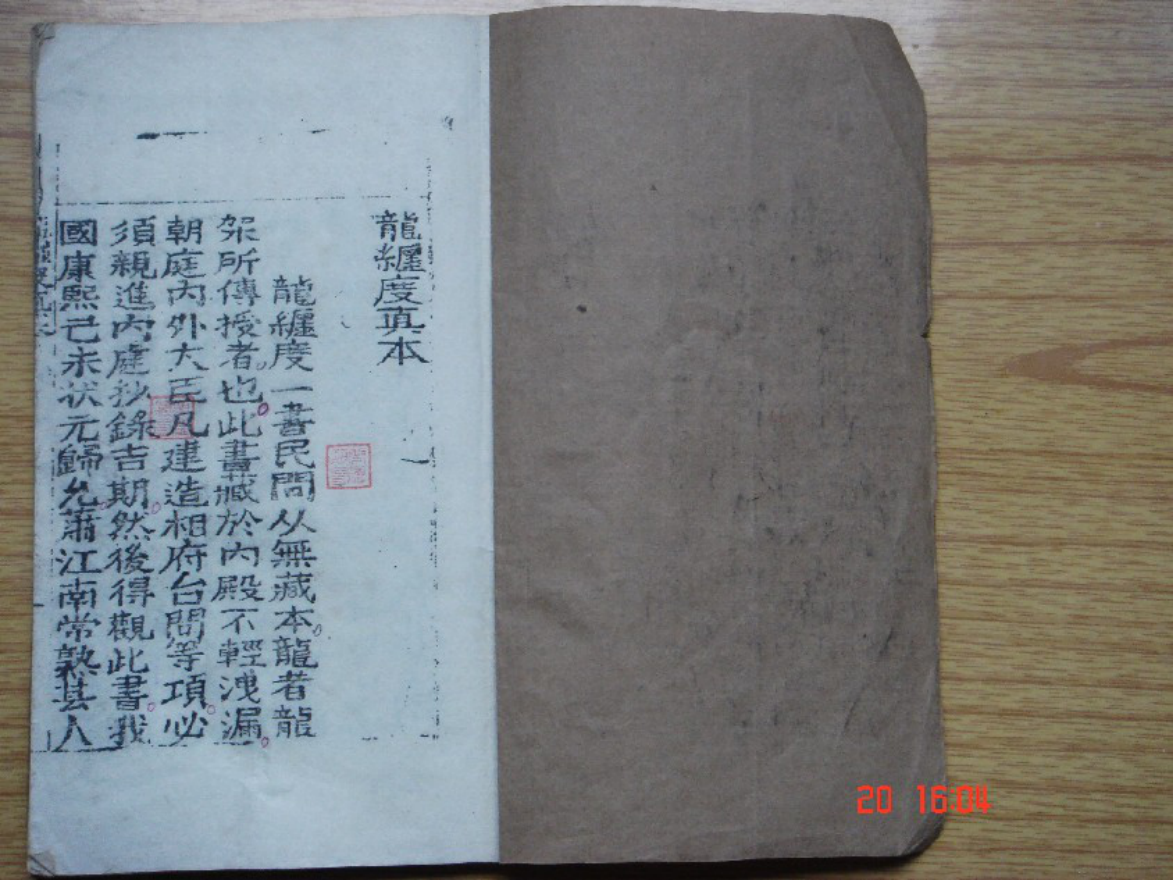 龍纏度真本
龍纏度一書民間从無藏本龍者龍
架所傳授者也此書藏於內殿不輕洩漏
朝庭內外大臣凡建造相府台閣等項必
須親進內庭抄錄吉期然後得觀此書我
國康熙己未狀元歸允蕭江南常熟县人
20 16:04